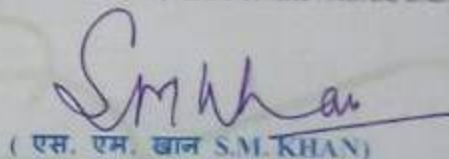 SM Khan
( एस. एम. खान S.M. KHAN)